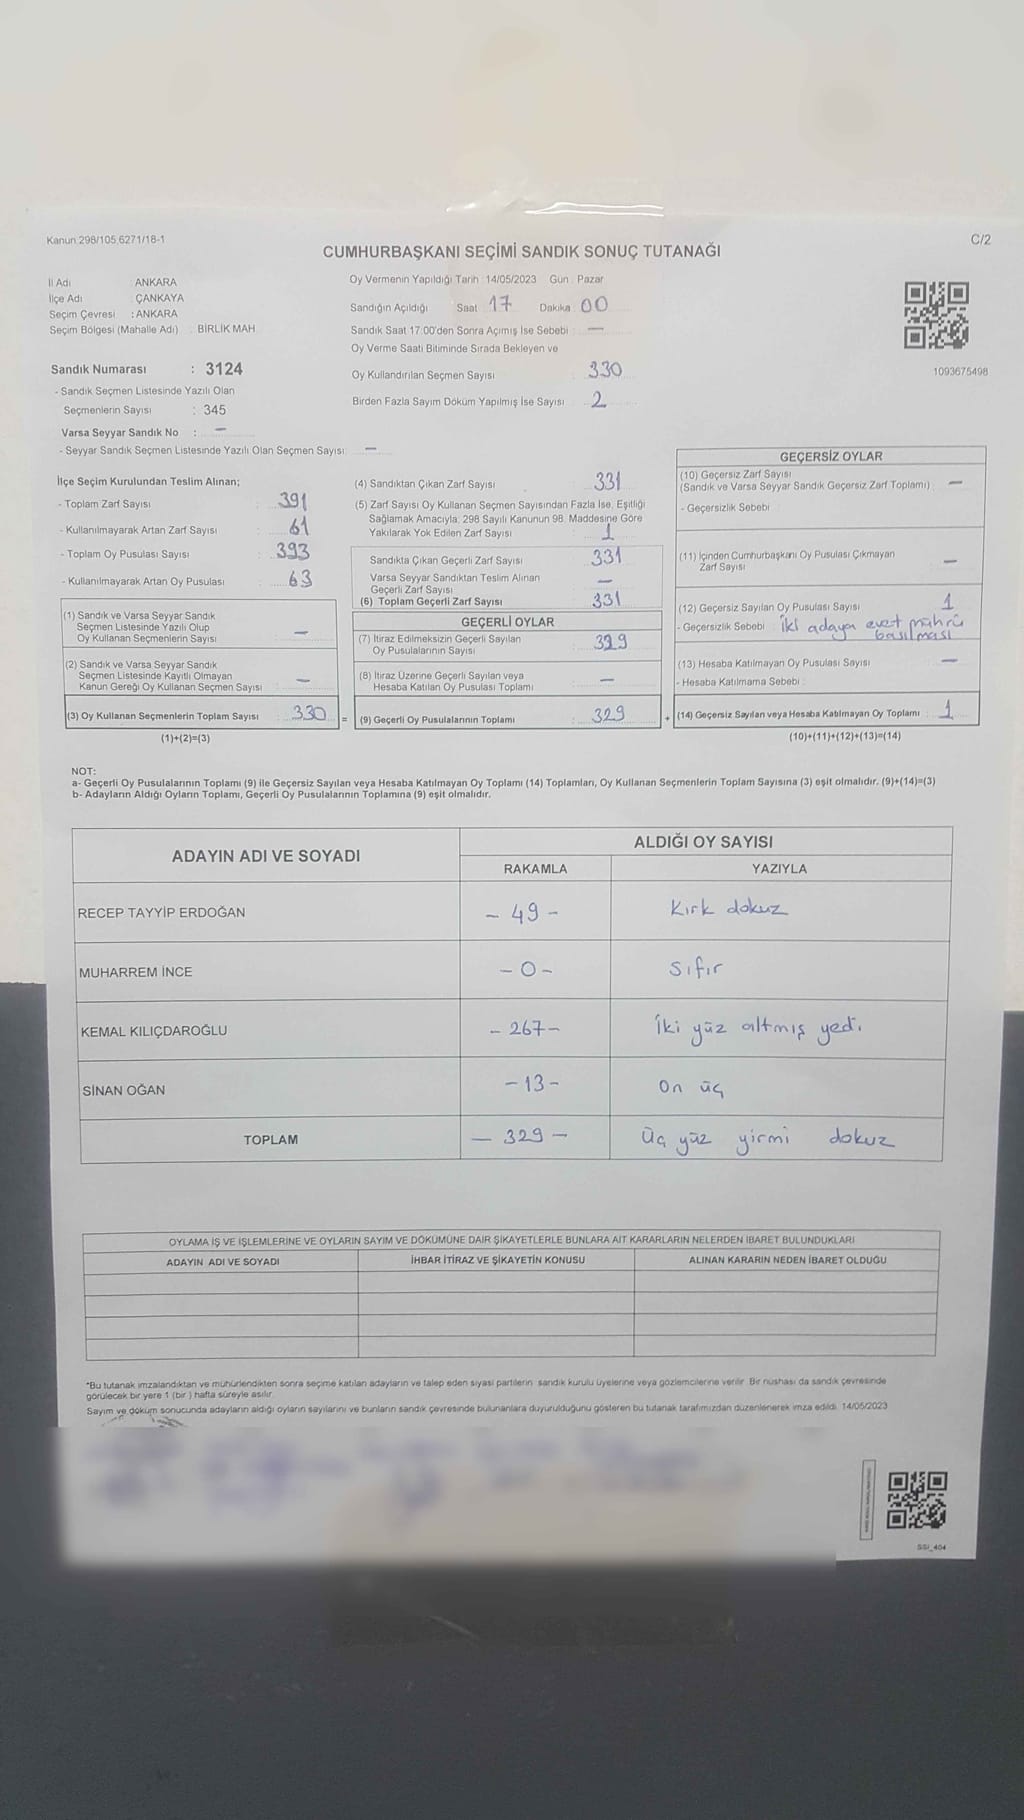 Kanun:298/105,6271/18-1
C/2
CUMHURBAŞKANI SEÇİMİ SANDIK SONUÇ TUTANAĞI
İl Adı : ANKARA
İlçe Adı : ÇANKAYA
Seçim Çevresi : ANKARA
Seçim Bölgesi (Mahalle Adı) : BİRLİK MAH.
Oy Vermenin Yapıldığı Tarih : 14/05/2023 Gün : Pazar
Sandığın Açıldığı Saat 17 Dakika 00
Sandık Saat 17:00'den Sonra Açımış İse Sebebi : —
Oy Verme Saati Bitiminde Sırada Bekleyen ve
Oy Kullandırılan Seçmen Sayısı : 330
Birden Fazla Sayım Döküm Yapılmış İse Sayısı : 2
1093675498
Sandık Numarası : 3124
- Sandık Seçmen Listesinde Yazılı Olan
Seçmenlerin Sayısı : 345
Varsa Seyyar Sandık No : —
- Seyyar Sandık Seçmen Listesinde Yazılı Olan Seçmen Sayısı: —
İlçe Seçim Kurulundan Teslim Alınan;
- Toplam Zarf Sayısı : 391
- Kullanılmayarak Artan Zarf Sayısı : 61
- Toplam Oy Pusulası Sayısı : 393
- Kullanılmayarak Artan Oy Pusulası : 63
(1) Sandık ve Varsa Seyyar Sandık
Seçmen Listesinde Yazılı Olup
Oy Kullanan Seçmenlerin Sayısı —
(2) Sandık ve Varsa Seyyar Sandık
Seçmen Listesinde Kayıtlı Olmayan
Kanun Gereği Oy Kullanan Seçmen Sayısı —
(3) Oy Kullanan Seçmenlerin Toplam Sayısı 330 =
(1)+(2)=(3)
(4) Sandıktan Çıkan Zarf Sayısı : 331
(5) Zarf Sayısı Oy Kullanan Seçmen Sayısından Fazla İse, Eşitliği
Sağlamak Amacıyla; 298 Sayılı Kanunun 98. Maddesine Göre
Yakılarak Yok Edilen Zarf Sayısı : 1
Sandıkta Çıkan Geçerli Zarf Sayısı : 331
Varsa Seyyar Sandıktan Teslim Alınan
Geçerli Zarf Sayısı —
(6) Toplam Geçerli Zarf Sayısı : 331
GEÇERLİ OYLAR
(7) İtiraz Edilmeksizin Geçerli Sayılan
Oy Pusulalarının Sayısı : 329
(8) İtiraz Üzerine Geçerli Sayılan veya
Hesaba Katılan Oy Pusulası Toplamı —
(9) Geçerli Oy Pusulalarının Toplamı : 329 +
GEÇERSİZ OYLAR
(10) Geçersiz Zarf Sayısı
(Sandık ve Varsa Seyyar Sandık Geçersiz Zarf Toplamı) : —
- Geçersizlik Sebebi :
(11) İçinden Cumhurbaşkanı Oy Pusulası Çıkmayan
Zarf Sayısı —
(12) Geçersiz Sayılan Oy Pusulası Sayısı 1
- Geçersizlik Sebebi : İki adaya evet mührü
basılması
(13) Hesaba Katılmayan Oy Pusulası Sayısı —
- Hesaba Katılmama Sebebi :
(14) Geçersiz Sayılan veya Hesaba Katılmayan Oy Toplamı : 1
(10)+(11)+(12)+(13)=(14)
NOT:
a- Geçerli Oy Pusulalarının Toplamı (9) ile Geçersiz Sayılan veya Hesaba Katılmayan Oy Toplamı (14) Toplamları, Oy Kullanan Seçmenlerin Toplam Sayısına (3) eşit olmalıdır. (9)+(14)=(3)
b- Adayların Aldığı Oyların Toplamı, Geçerli Oy Pusulalarının Toplamına (9) eşit olmalıdır.
ADAYIN ADI VE SOYADI
ALDIĞI OY SAYISI
RAKAMLA YAZIYLA
RECEP TAYYİP ERDOĞAN - 49 - Kırk dokuz
MUHARREM İNCE - 0 - Sıfır
KEMAL KILIÇDAROĞLU - 267 - İki yüz altmış yedi
SİNAN OĞAN - 13 - On üç
TOPLAM - 329 - Üç yüz yirmi dokuz
OYLAMA İŞ VE İŞLEMLERİNE VE OYLARIN SAYIM VE DÖKÜMÜNE DAİR ŞİKAYETLERLE BUNLARA AİT KARARLARIN NELERDEN İBARET BULUNDUKLARI
ADAYIN ADI VE SOYADI İHBAR İTİRAZ VE ŞİKAYETİN KONUSU ALINAN KARARIN NEDEN İBARET OLDUĞU
*Bu tutanak imzalandıktan ve mühürlendikten sonra seçime katılan adayların ve talep eden siyasi partilerin sandık kurulu üyelerine veya gözlemcilerine verilir. Bir nüshası da sandık çevresinde
görülecek bir yere 1 (bir ) hafta süreyle asılır.
Sayım ve döküm sonucunda adayların aldığı oyların sayılarını ve bunların sandık çevresinde bulunanlara duyurulduğunu gösteren bu tutanak tarafımızdan düzenlenerek imza edildi. 14/05/2023
SSİ_404